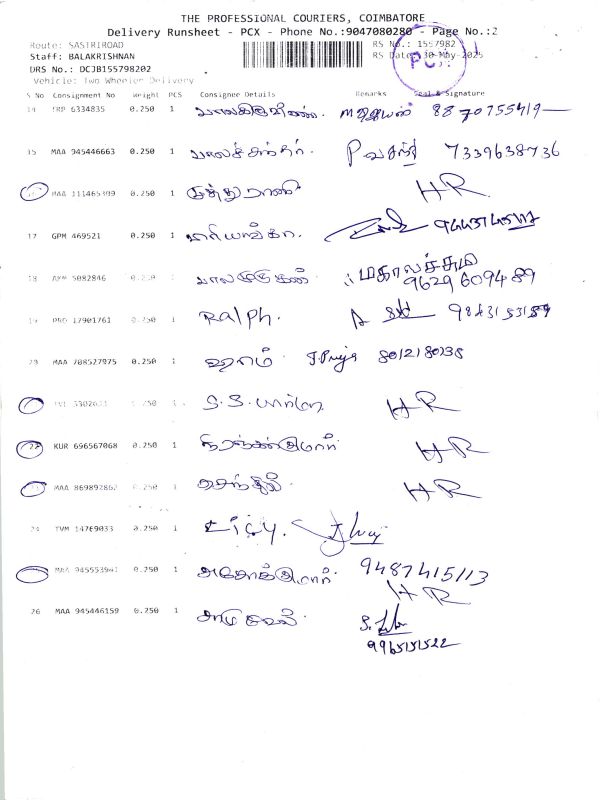 THE PROFESSIONAL COURIERS, COIMBATORE
Delivery Runsheet - PCX - Phone No.:9047080280 - Page No.:2
Route: SASTRIROAD RS No.: 1557982
Staff: BALAKRISHNAN RS Date: 30-May-2025
DRS No.: DCJB155798202
Vehicle: Two Wheeler Delivery
S No Consignment No Weight PCS Consignee Details Remarks Seal & Signature
14 TRP 6334835 0.250 1 8870755419
15 MAA 945446663 0.250 1 பாலச்சந்தர். P வசந்தி 7339638736
MAA 111465 0.250 1 முத்துராணி HR
17 GPM 469521 0.250 1 பிரியங்கா.
18 5082846 0.250 1 பாலமுருகன் மகாலச்சுமி
9629609489
19 17901761 0.250 1 Ralph. A
20 MAA 708527975 0.250 1 ஹரிம் J.Priya 8012180335
0.250 1 S.S. பார்மா HR
22 KUR 696567068 0.250 1 நிரஞ்சன்குமார் HR
MAA 869892862 0.250 1 செந்தில் HR
24 TVM 14769033 0.250 1
MAA 0.250 1 அசோக்குமார் 9487415113
HR
26 MAA 945446159 0.250 1 சாமுவேல் S.
9965151522